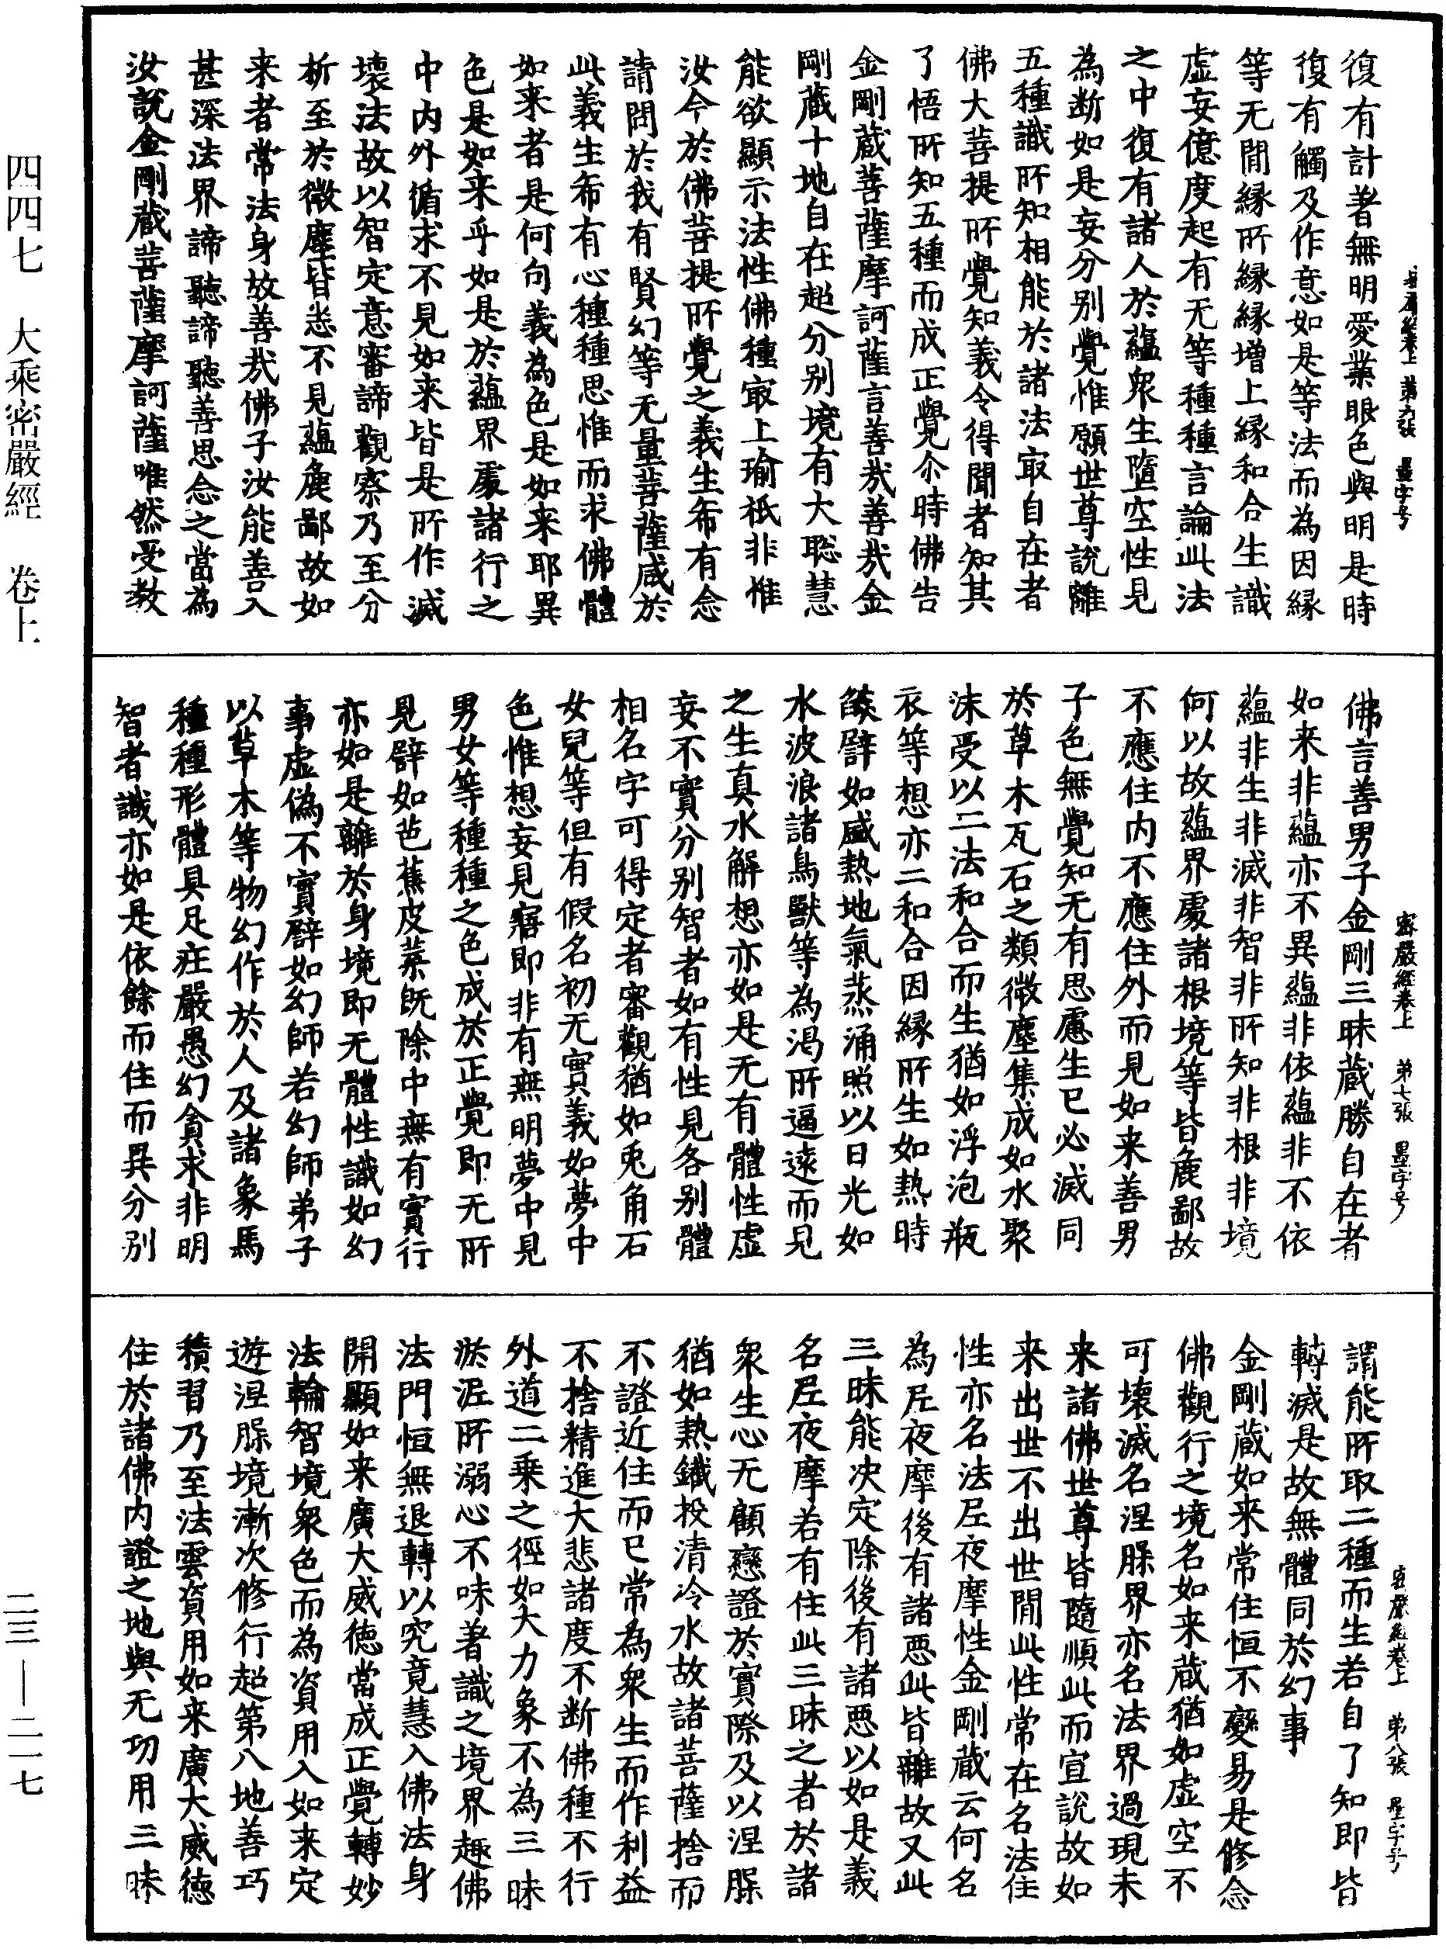 四四七　大乘密嚴經　卷上
二三—二一七
嚴經卷上　第六張　墨字号
復有計著無明愛業眼色與明是時
復有觸及作意如是等法而為因緣
等无間緣所緣緣增上緣和合生識
虛妄億度起有无等種種言論此法
之中復有諸人於蘊衆生墮空性見
為断如是妄分別覺惟願世尊說離
五種識所知相能於諸法㝡自在者
佛大菩提所覺知義令得聞者知其
了悟所知五種而成正覺尒時佛告
金剛藏菩薩摩訶薩言善㢤善㢤金
剛藏十地自在超分別境有大聡慧
能欲顯示法性佛種㝡上瑜祇非惟
汝今於佛菩提所覺之義生布有念
請問於我有賢幻等无量菩薩咸於
此義生布有心種種思惟而求佛體
如来者是何句義為色是如来耶異
色是如来乎如是於蘊界處諸行之
中内外循求不見如来皆是所作滅
壞法故以智定意審諦觀察乃至分
析至於微塵皆悉不見蘊麁鄙故如
来者常法身故善㢤佛子汝能善入
甚深法界諦聽諦聽善思念之當為
汝說金剛藏菩薩摩訶薩唯然受教
密嚴經卷上　第七張　墨字号
佛言善男子金剛三昧藏勝自在者
如来非蘊亦不異蘊非依蘊非不依
蘊非生非滅非智非所知非根非境
何以故蘊界處諸根境等皆麁鄙故
不應住内不應住外而見如来善男
子色無覺知无有思慮生已必滅同
於草木瓦石之類微塵集成如水聚
沫受以二法和合而生猶如浮泡瓶
衣等想亦二和合因緣所生如熱時
燄譬如盛熱地氣蒸涌照以日光如
水波浪諸鳥獸等為渴所逼遠而見
之生真水解想亦如是无有體性虛
妄不實分別智者如有性見各別體
相名字可得定者審觀猶如兎角石
女兒等但有假名初无實義如夢中
色惟想妄見寤即非有無明夢中見
男女等種種之色成於正覺即无所
見譬如芭蕉皮葉既除中無有實行
亦如是離於身境即无體性識如幻
事虛偽不實譬如幻師若幻師弟子
以草木等物幻作於人及諸象馬
種種形體具足庄嚴愚幻貪求非明
智者識亦如是依餘而住而異分別
密嚴經卷上　第八張　墨字号
謂能所取二種而生若自了知即皆
轉滅是故無體同於幻事
金剛藏如来常住恒不變易是修念
佛觀行之境名如来藏猶如虛空不
可壞滅名涅脲界亦名法界過現未
来諸佛世尊皆隨順此而宣說故如
来出世不出世間此性常在名法住
性亦名法尼夜摩性金剛藏云何名
為尼夜摩後有諸惡此皆離故又此
三昧能决定除後有諸惡以如是義
名尼夜摩若有住此三昧之者於諸
衆生心无顧戀證於實際及以涅脲
猶如熱鐵投清冷水故諸菩薩捨而
不證近住而已常為衆生而作利益
不捨精進大悲諸度不断佛種不行
外道二乘之徑如大力象不為三昧
淤泥所溺心不味著識之境界趣佛
法門恒無退轉以究竟慧入佛法身
開顯如来廣大威德當成正覺轉妙
法輪智境衆色而為資用入如来定
遊涅脲境漸次修行超第八地善巧
積習乃至法雲資用如来廣大威德
住於諸佛内證之地與无功用三昧